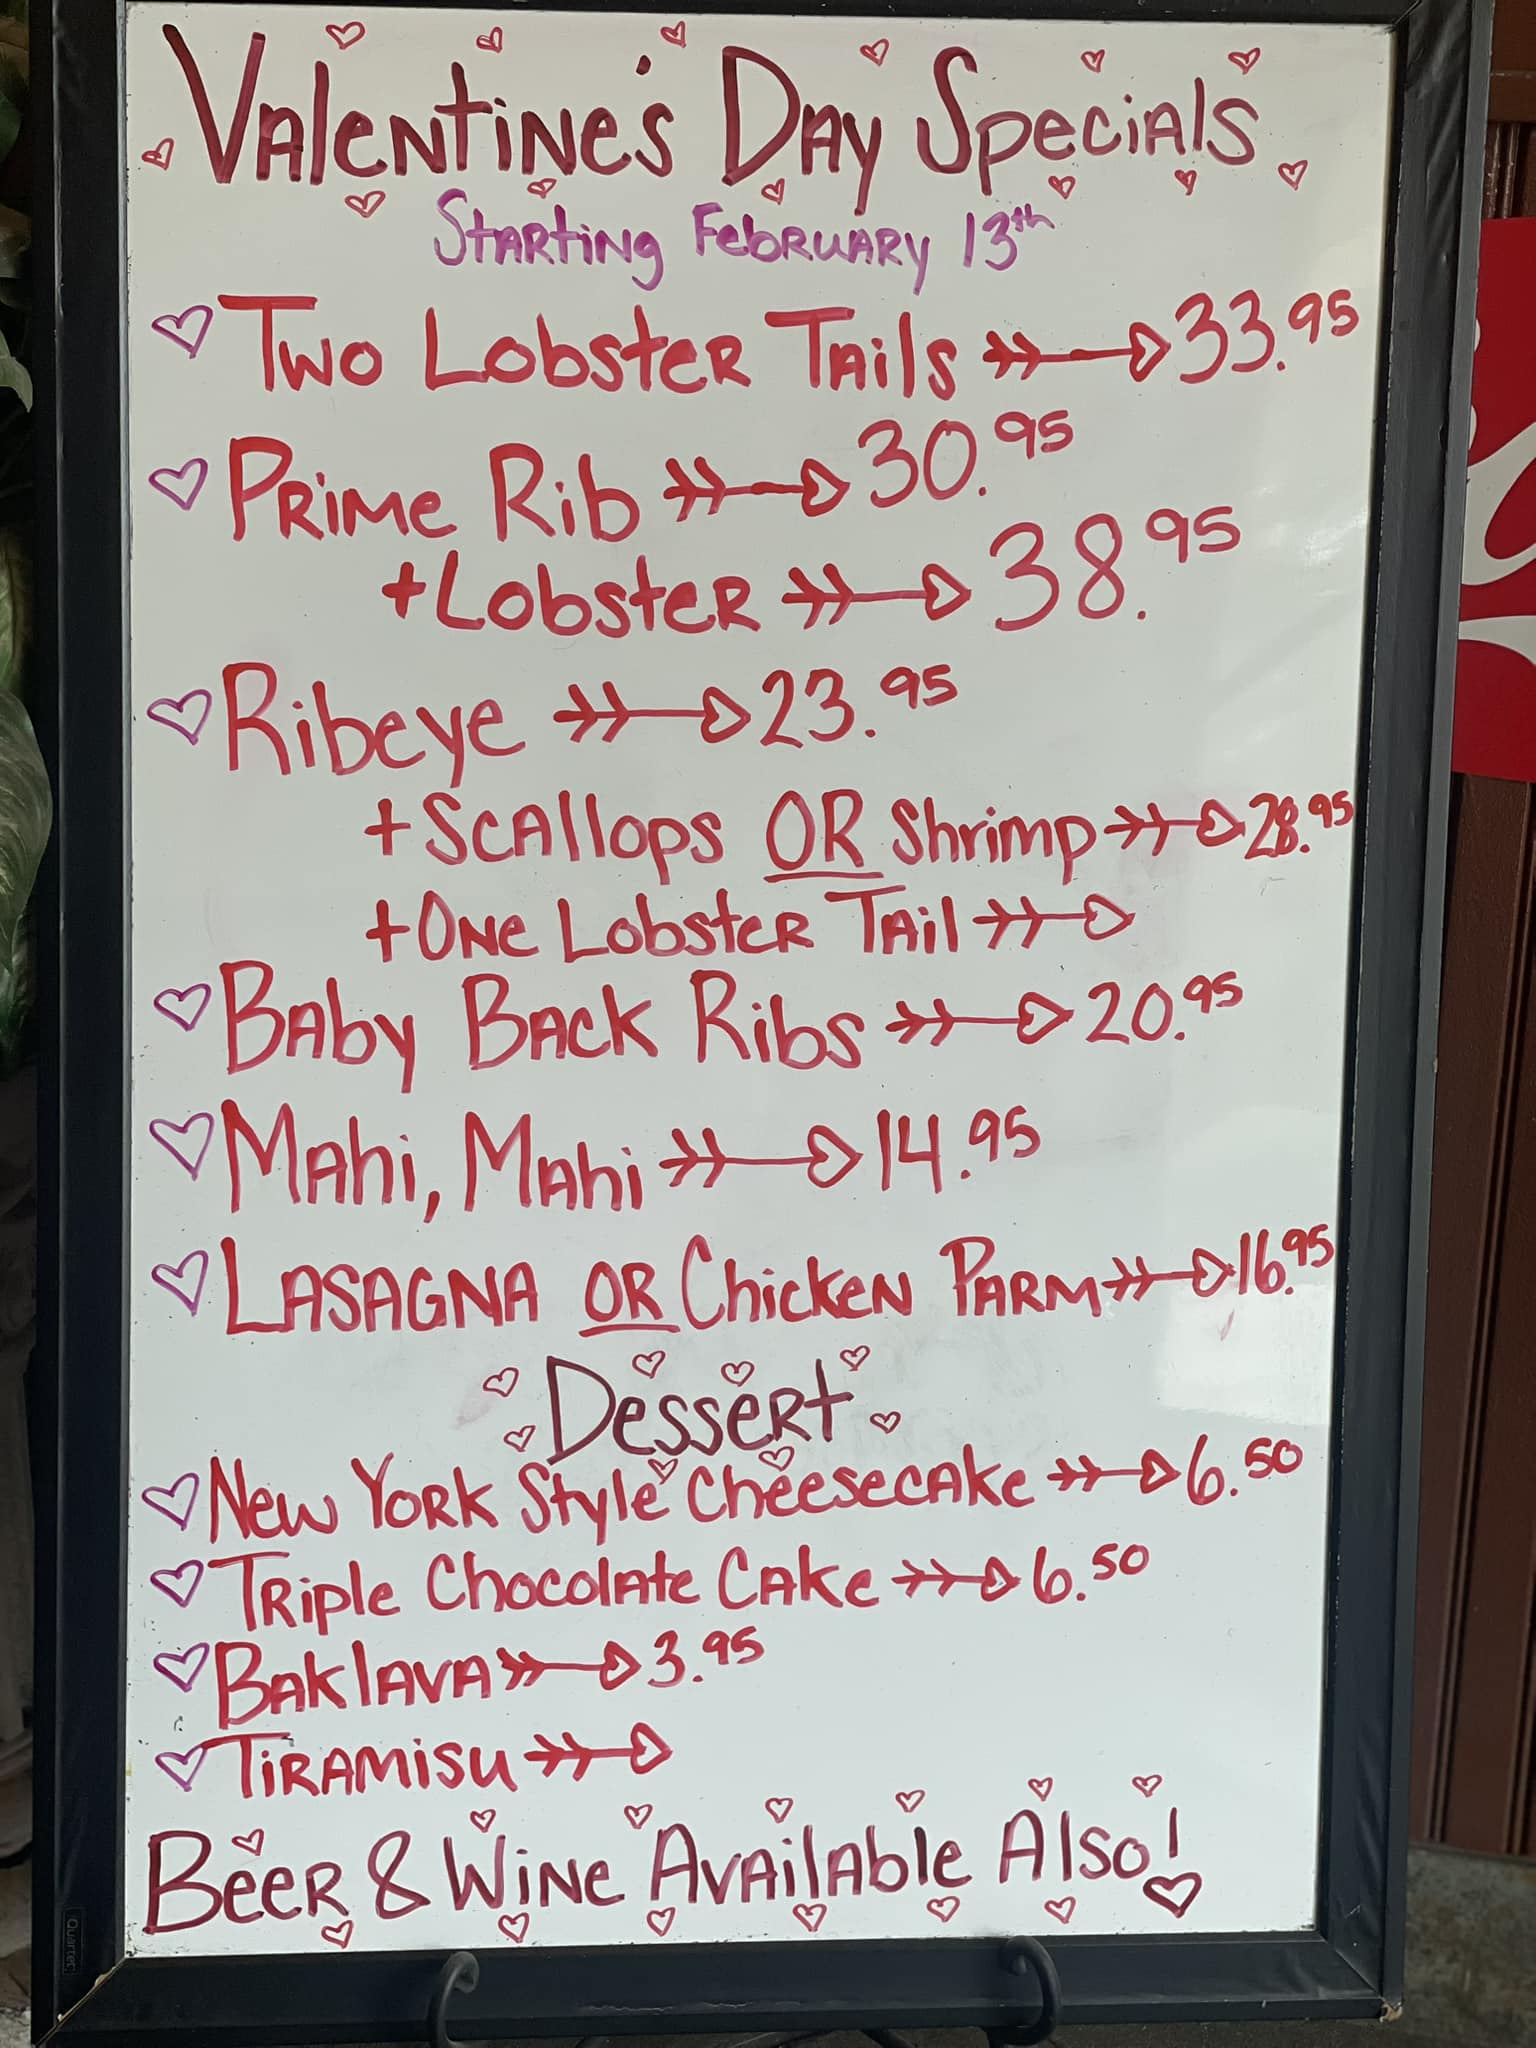 Valentine's Day Specials
Starting February 13th
Two Lobster Tails 33.95
Prime Rib 30.95
+Lobster 38.95
Ribeye 23.95
+Scallops OR Shrimp 28.95
+One Lobster Tail
Baby Back Ribs 20.95
Mahi, Mahi 14.95
Lasagna OR Chicken Parm 16.95
Dessert
New York Style Cheesecake 6.50
Triple Chocolate Cake 6.50
Baklava 3.95
Tiramisu
Beer & Wine Available Also!
Quartet